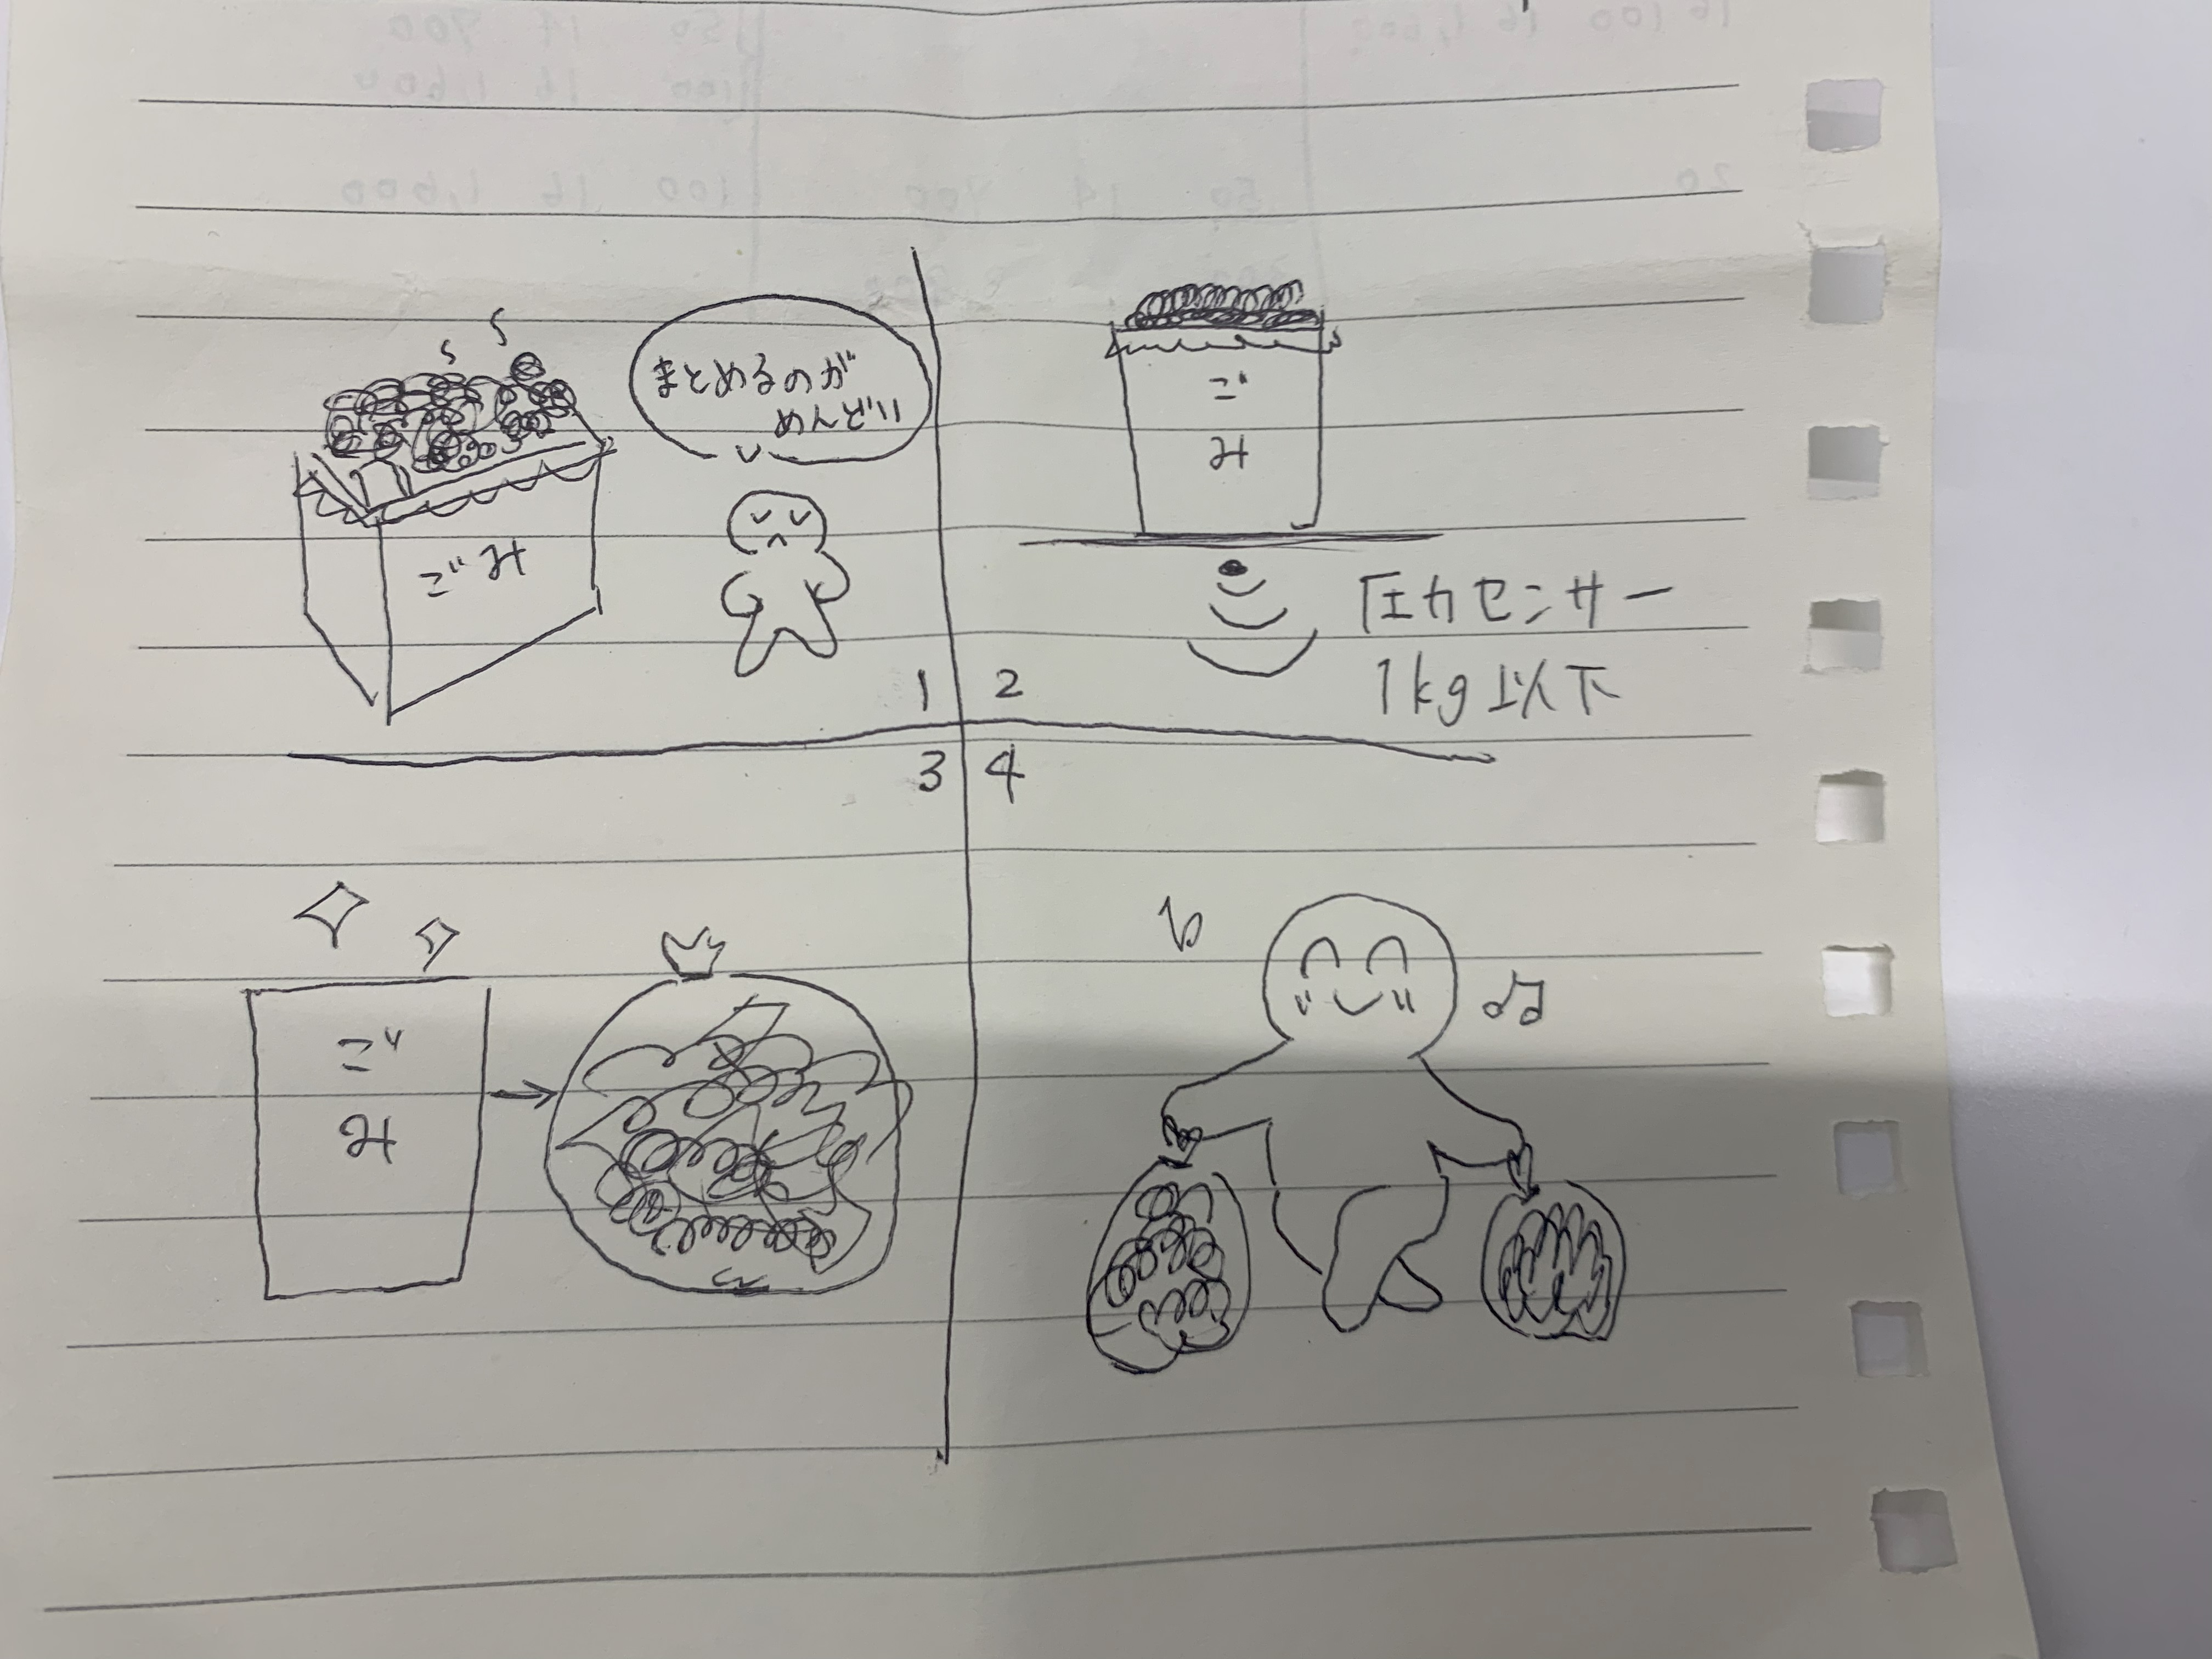 まとめるのが
めんどい
ごみ
1
ご
み
圧力センサー
1kg以下
2
3
ご
み
4